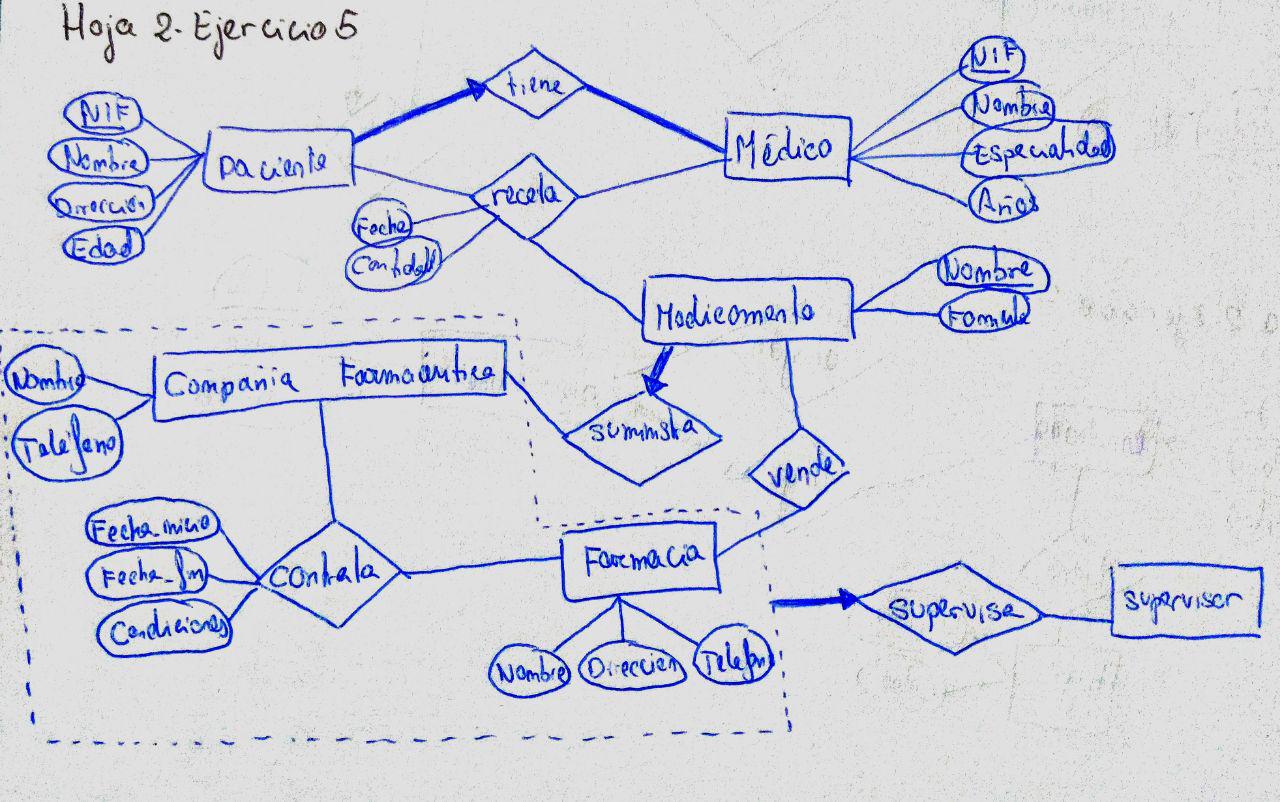 Hoja 2. Ejercicio 5
tiene
NIF
Nombre
Dirección
Edad
Paciente
Médico
NIF
Nombre
Especialidad
Años
receta
Fecha
Cantidad
Medicamento
Nombre
Formula
Compañia Farmaceutica
Nombre
Teléfono
suministra
vende
Fecha_inicio
Fecha_fin
Condiciones
Contrata
Farmacia
Nombre
Dirección
Telefon
supervisa
supervisor